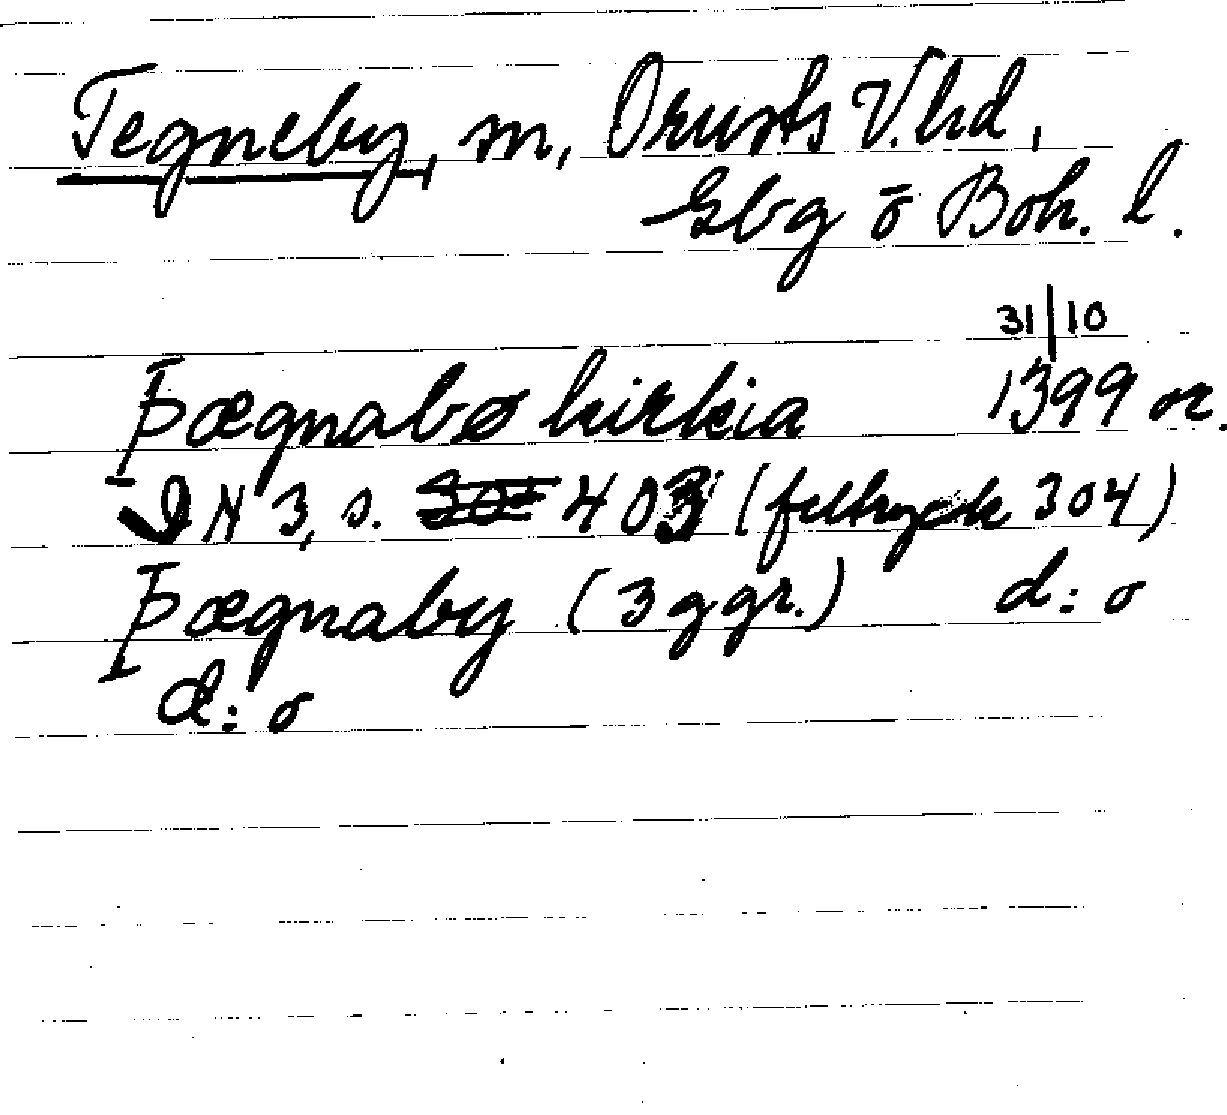 Tegneby, sn, Orusts V. hd,
Gbg ō Boh. l.
31/10
Þægnabø kirkia 1399 or.
DN 3, s. 403 (feltryck 304)
Þægnaby (3 ggr.) d:o
d:o